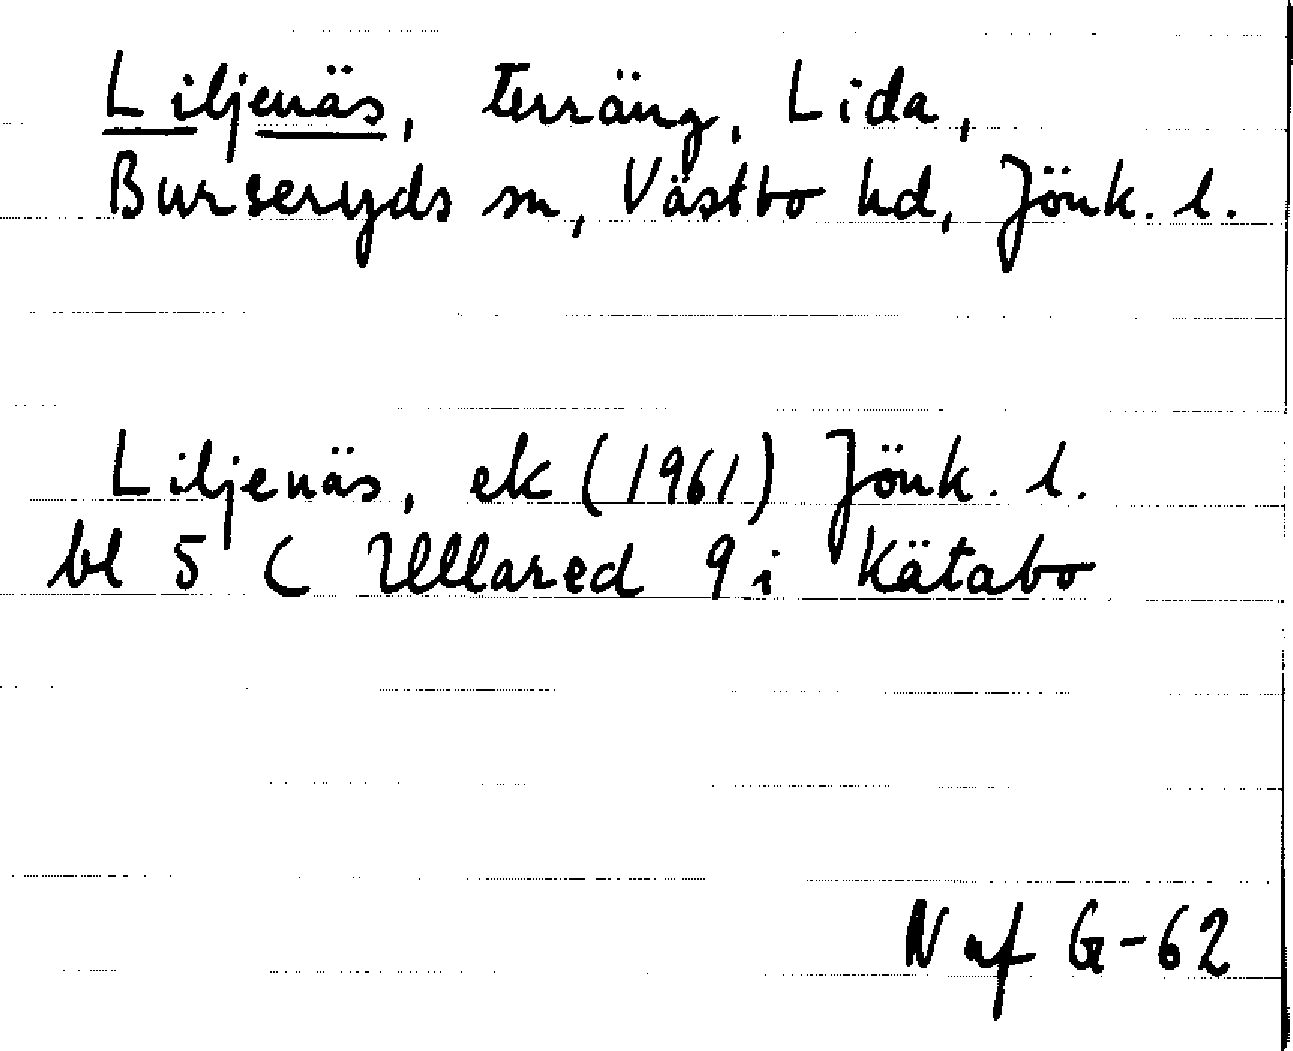 Liljenäs, terräng, Lida,
Burseryds sn, Västbo hd, Jönk. l.
Liljenäs, ek (1961) Jönk. l.
bl 5 C Ullared 9 i Kätabo
N af G-62